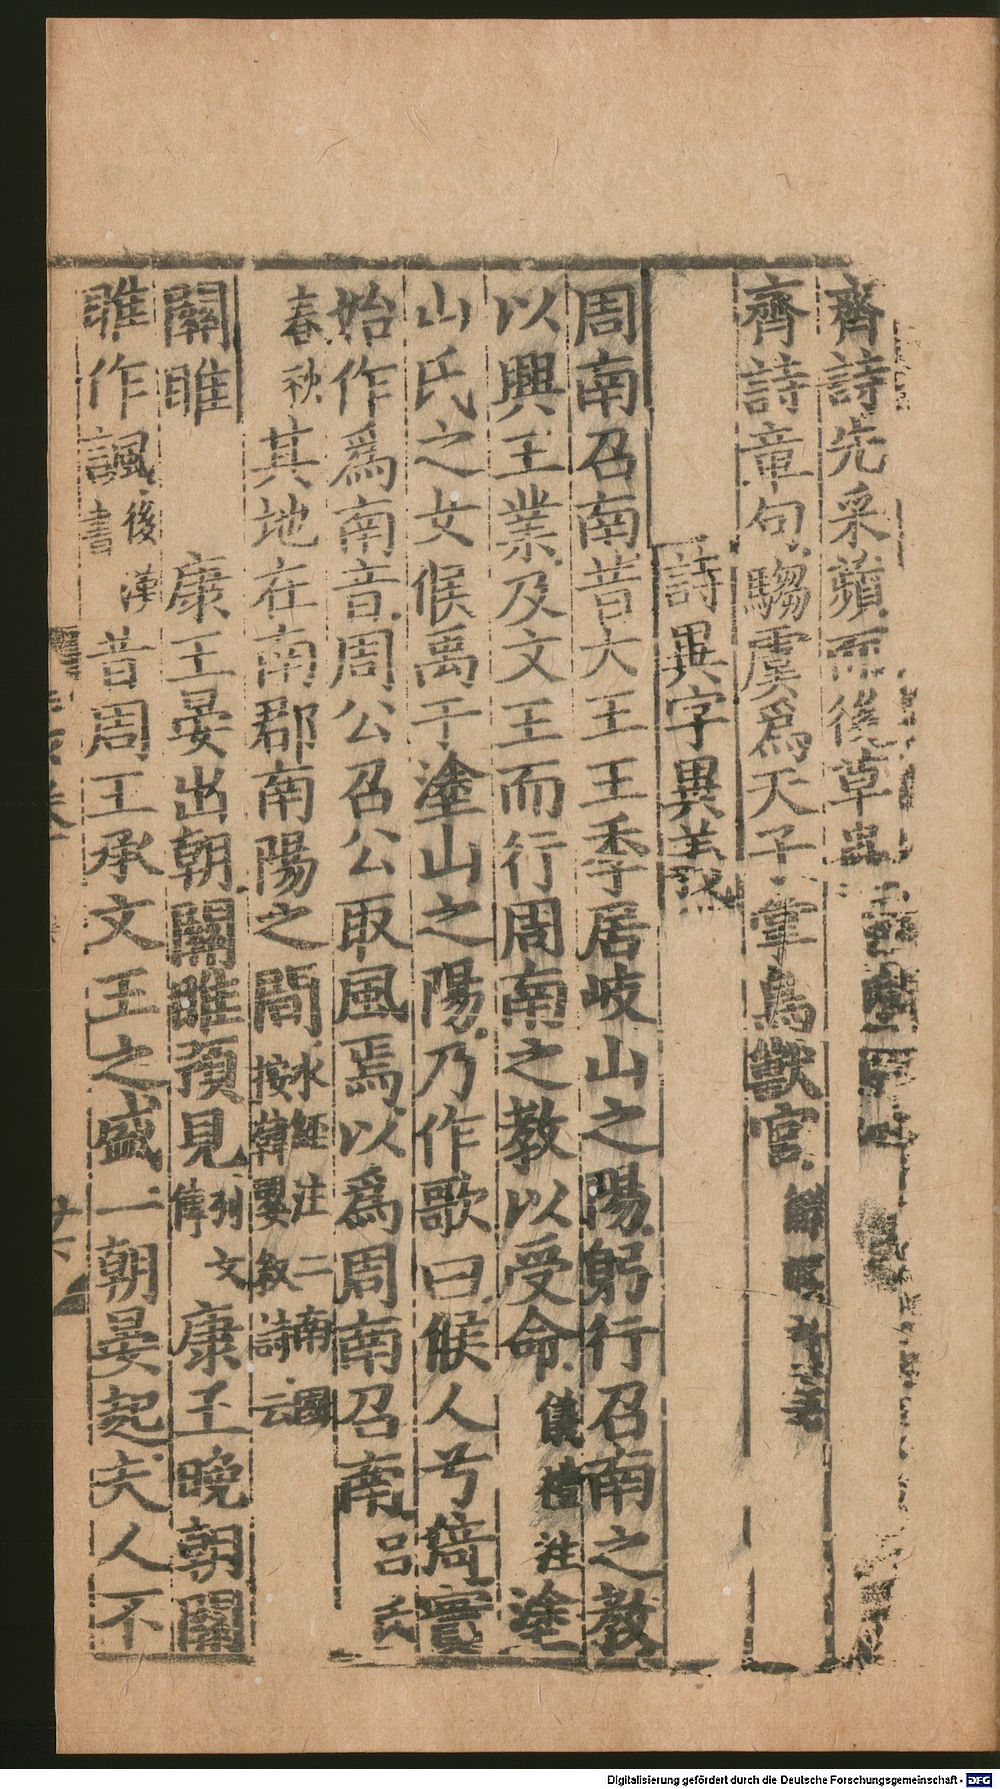 齊詩先采蘋而後草蟲
齊詩章句騶虞爲天子掌鳥獸官
詩異字異義
周南召南昔大王王季居岐山之陽躬行召南之教
以興王業及文王而行周南之教以受命儀禮注塗
山氏之女候禹于塗山之陽乃作歌曰候人兮猗實
始作爲南音周公召公取風焉以爲周南召南呂氏
春秋其地在南郡南陽之間水經注二南國按韓嬰叙詩云
關雎　康王晏出朝關雎預見列文傳康王晚朝關
雎作諷後漢書昔周王承文王之盛一朝晏起夫人不
Digitalisierung gefördert durch die Deutsche Forschungsgemeinschaft - DFG